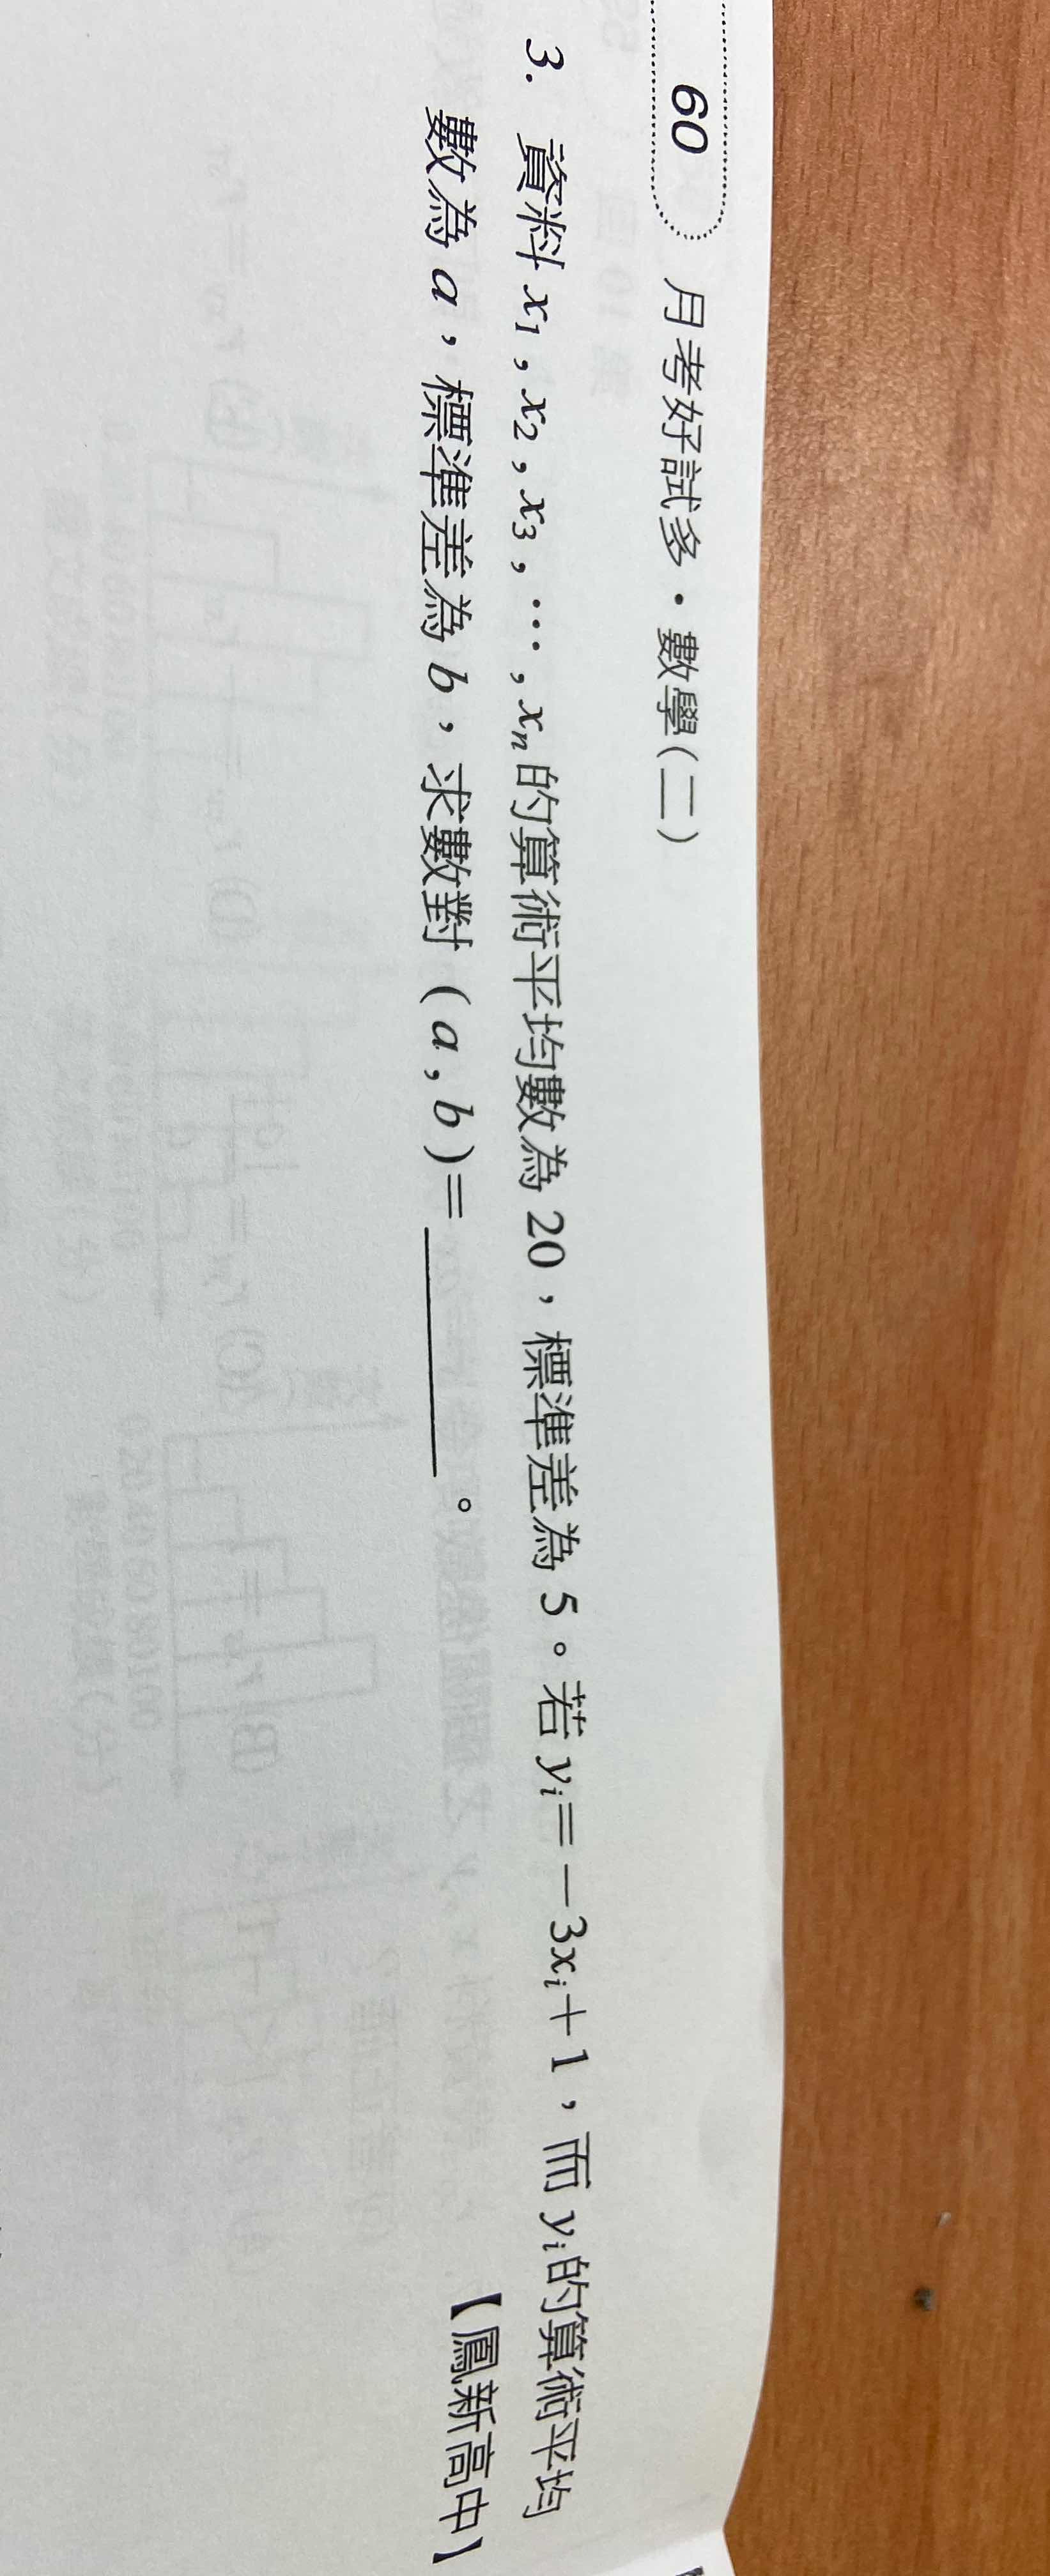 60 月考好試多・數學(二)
3. 資料 x₁, x₂, x₃, ⋯, xₙ 的算術平均數為 20，標準差為 5。若 yᵢ＝－3xᵢ＋1，而 yᵢ 的算術平均
數為 a，標準差為 b，求數對 (a, b)＝________。 【鳳新高中】